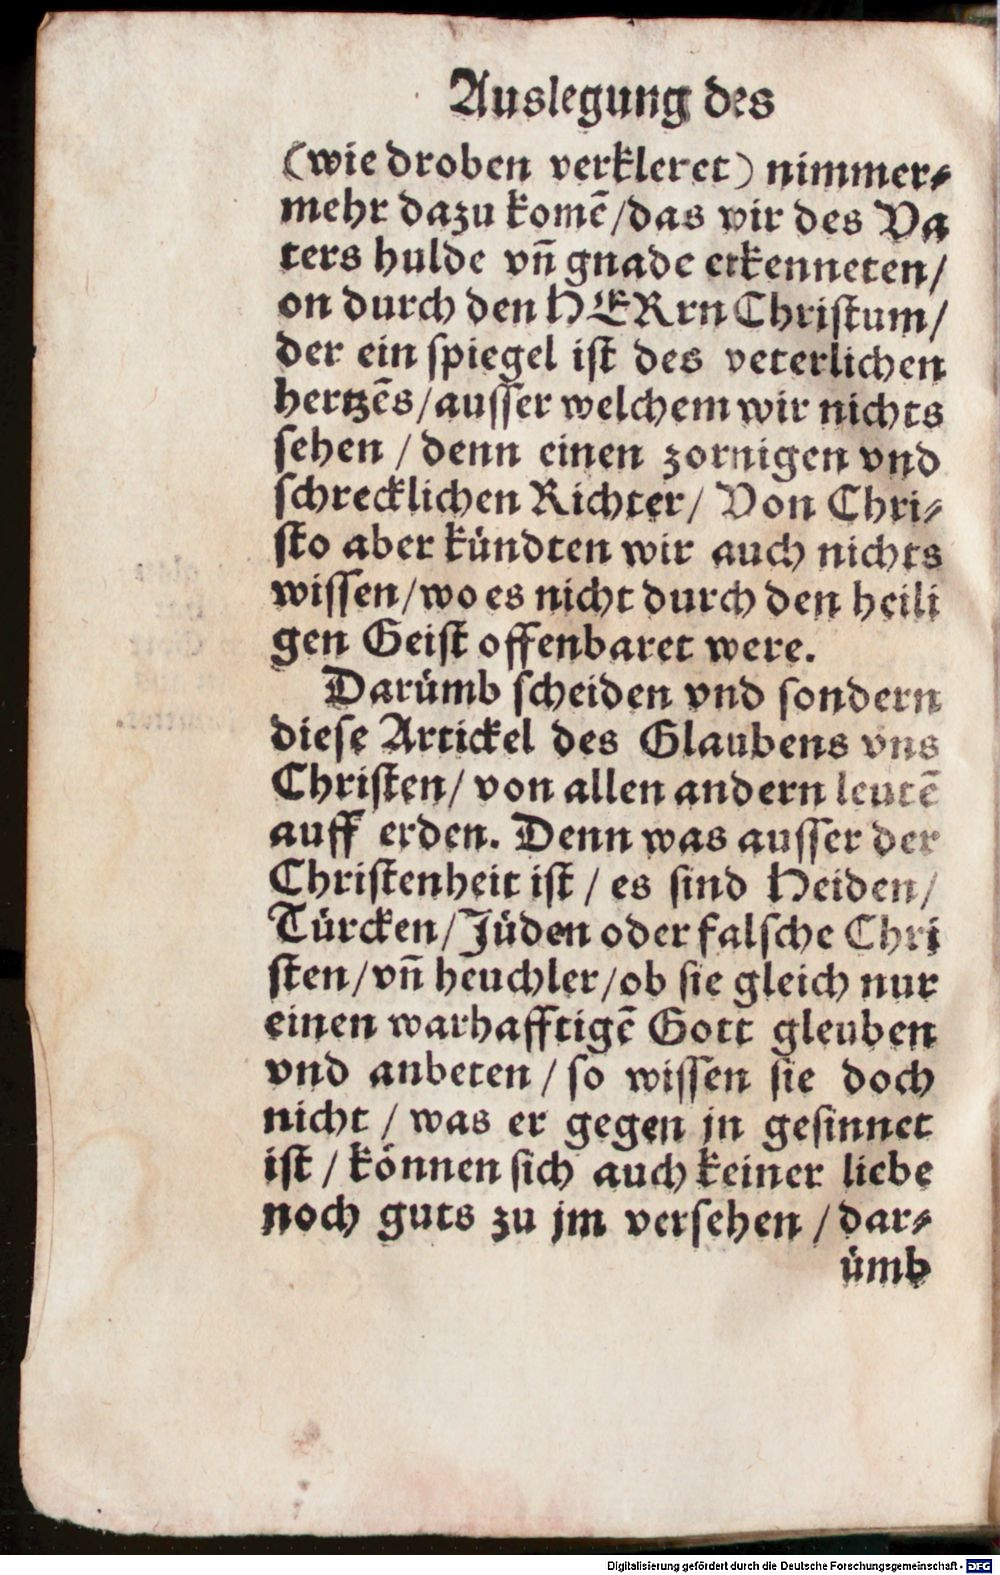 Auslegung des
(wie droben verkleret) nimmer⸗
mehr dazu komẽ/das wir des Va
ters hulde vñ gnade erkenneten/
on durch den HERrn Christum/
der ein spiegel ist des veterlichen
hertzẽs/ausser welchem wir nichts
sehen / denn einen zornigen vnd
schrecklichen Richter/ Von Chri⸗
sto aber kündten wir auch nichts
wissen/wo es nicht durch den heili
gen Geist offenbaret were.
Darümb scheiden vnd sondern
diese Artickel des Glaubens vns
Christen/ von allen andern leutẽ
auff erden. Denn was ausser der
Christenheit ist / es sind Heiden/
Türcken/Jüden oder falsche Chri
sten/vñ heuchler/ob sie gleich nur
einen warhafftigẽ Gott gleuben
vnd anbeten / so wissen sie doch
nicht / was er gegen jn gesinnet
ist / können sich auch keiner liebe
noch guts zu jm versehen / dar⸗
ümb
Digitalisierung gefördert durch die Deutsche Forschungsgemeinschaft - DFG